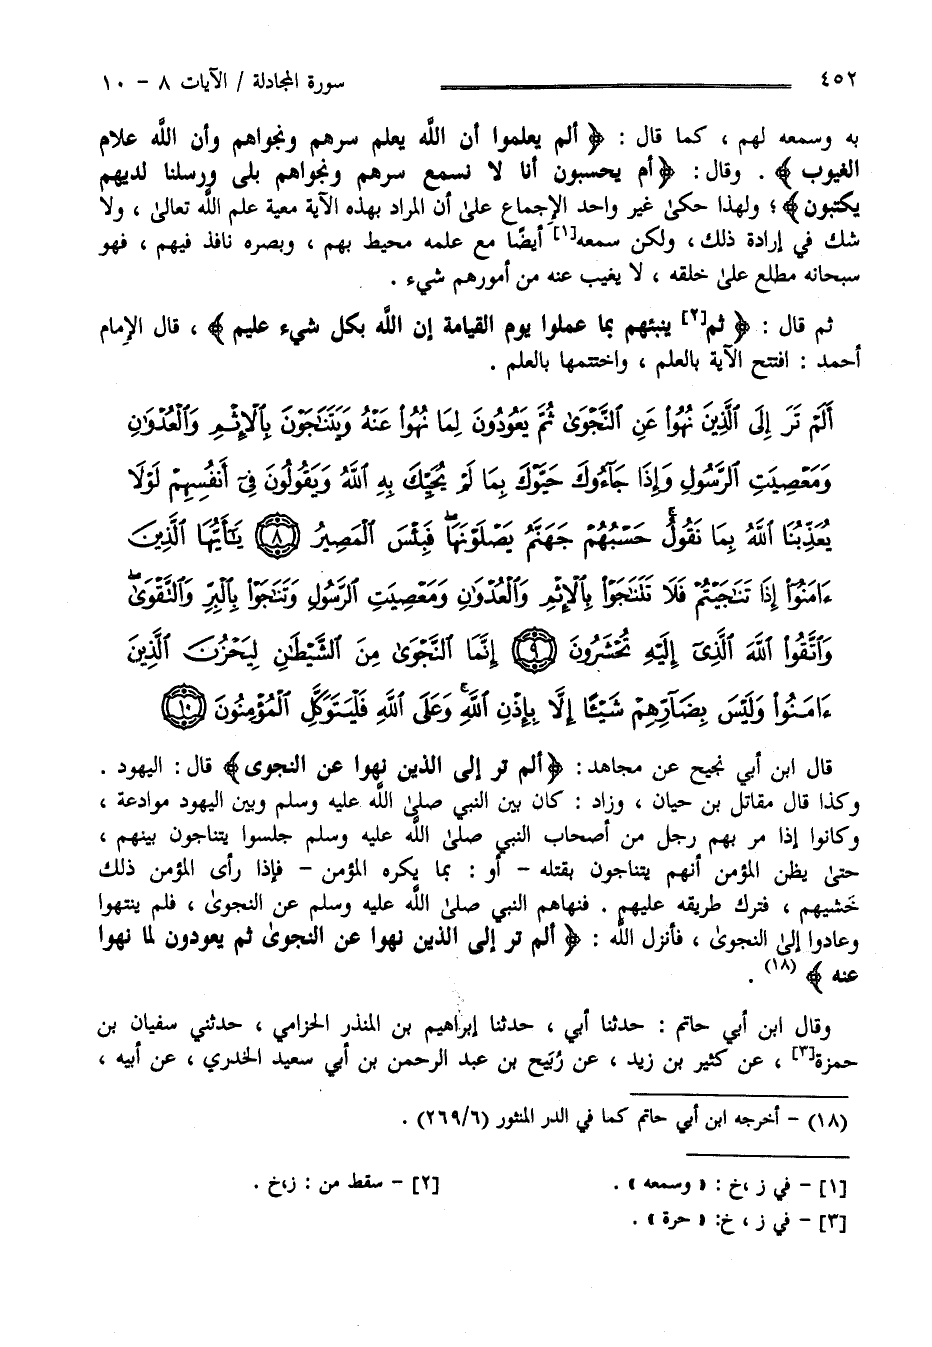 ٤٥٢ سورة المجادلة / الآيات ٨ - ١٠
به وسمعه لهم ، كما قال : ﴿ ألم يعلموا أن اللَّه يعلم سرهم ونجواهم وأن اللَّه علام
الغيوب ﴾ . وقال : ﴿أم يحسبون أنا لا نسمع سرهم ونجواهم بلى ورسلنا لديهم
يكتبون﴾ ؛ ولهذا حكىٰ غير واحد الإجماع علىٰ أن المراد بهذه الآية معية علم اللَّه تعالى ، ولا
شك في إرادة ذلك ، ولكن سمعه[١] أيضًا مع علمه محيط بهم ، وبصره نافذ فيهم ، فهو
سبحانه مطلع علىٰ خلقه ، لا يغيب عنه من أمورهم شيء .
ثم قال : ﴿ ثم[٢] ينبئهم بما عملوا يوم القيامة إن اللَّه بكل شيء عليم ﴾ ، قال الإمام
أحمد : افتتح الآية بالعلم ، واختتمها بالعلم .
أَلَمْ تَرَ إِلَى ٱلَّذِينَ نُهُوا۟ عَنِ ٱلنَّجْوَىٰ ثُمَّ يَعُودُونَ لِمَا نُهُوا۟ عَنْهُ وَيَتَنَٰجَوْنَ بِٱلْإِثْمِ وَٱلْعُدْوَٰنِ
وَمَعْصِيَتِ ٱلرَّسُولِ وَإِذَا جَآءُوكَ حَيَّوْكَ بِمَا لَمْ يُحَيِّكَ بِهِ ٱللَّهُ وَيَقُولُونَ فِىٓ أَنفُسِهِمْ لَوْلَا
يُعَذِّبُنَا ٱللَّهُ بِمَا نَقُولُ ۚ حَسْبُهُمْ جَهَنَّمُ يَصْلَوْنَهَا ۖ فَبِئْسَ ٱلْمَصِيرُ ﴿٨﴾ يَٰٓأَيُّهَا ٱلَّذِينَ
ءَامَنُوٓا۟ إِذَا تَنَٰجَيْتُمْ فَلَا تَتَنَٰجَوْا۟ بِٱلْإِثْمِ وَٱلْعُدْوَٰنِ وَمَعْصِيَتِ ٱلرَّسُولِ وَتَنَٰجَوْا۟ بِٱلْبِرِّ وَٱلتَّقْوَىٰ ۖ
وَٱتَّقُوا۟ ٱللَّهَ ٱلَّذِىٓ إِلَيْهِ تُحْشَرُونَ ﴿٩﴾ إِنَّمَا ٱلنَّجْوَىٰ مِنَ ٱلشَّيْطَٰنِ لِيَحْزُنَ ٱلَّذِينَ
ءَامَنُوا۟ وَلَيْسَ بِضَآرِّهِمْ شَيْـًٔا إِلَّا بِإِذْنِ ٱللَّهِ ۚ وَعَلَى ٱللَّهِ فَلْيَتَوَكَّلِ ٱلْمُؤْمِنُونَ ﴿١٠﴾
قال ابن أبي نجيح عن مجاهد : ﴿ألم تر إلى الذين نهوا عن النجوى﴾ قال : اليهود .
وكذا قال مقاتل بن حيان ، وزاد : كان بين النبي صلىٰ اللَّه عليه وسلم وبين اليهود موادعة ،
وكانوا إذا مر بهم رجل من أصحاب النبي صلىٰ اللَّه عليه وسلم جلسوا يتناجون بينهم ،
حتىٰ يظن المؤمن أنهم يتناجون بقتله - أو : بما يكره المؤمن - فإذا رأى المؤمن ذلك
خشيهم ، فترك طريقه عليهم . فنهاهم النبي صلىٰ اللَّه عليه وسلم عن النجوىٰ ، فلم ينتهوا
وعادوا إلىٰ النجوىٰ ، فأنزل اللَّه : ﴿ ألم تر إلى الذين نهوا عن النجوىٰ ثم يعودون لما نهوا
عنه ﴾ (١٨) .
وقال ابن أبي حاتم : حدثنا أبي ، حدثنا إبراهيم بن المنذر الحزامي ، حدثني سفيان بن
حمزة[٣] ، عن كثير بن زيد ، عن رُبَيح بن عبد الرحمن بن أبي سعيد الخدري ، عن أبيه ،
(١٨) - أخرجه ابن أبي حاتم كما في الدر المنثور (٢٦٩/٦) .
[١] - في ز ،خ : « وسمعه » . [٢] - سقط من : ز،خ .
[٣] - في ز ، خ: « حرة » .